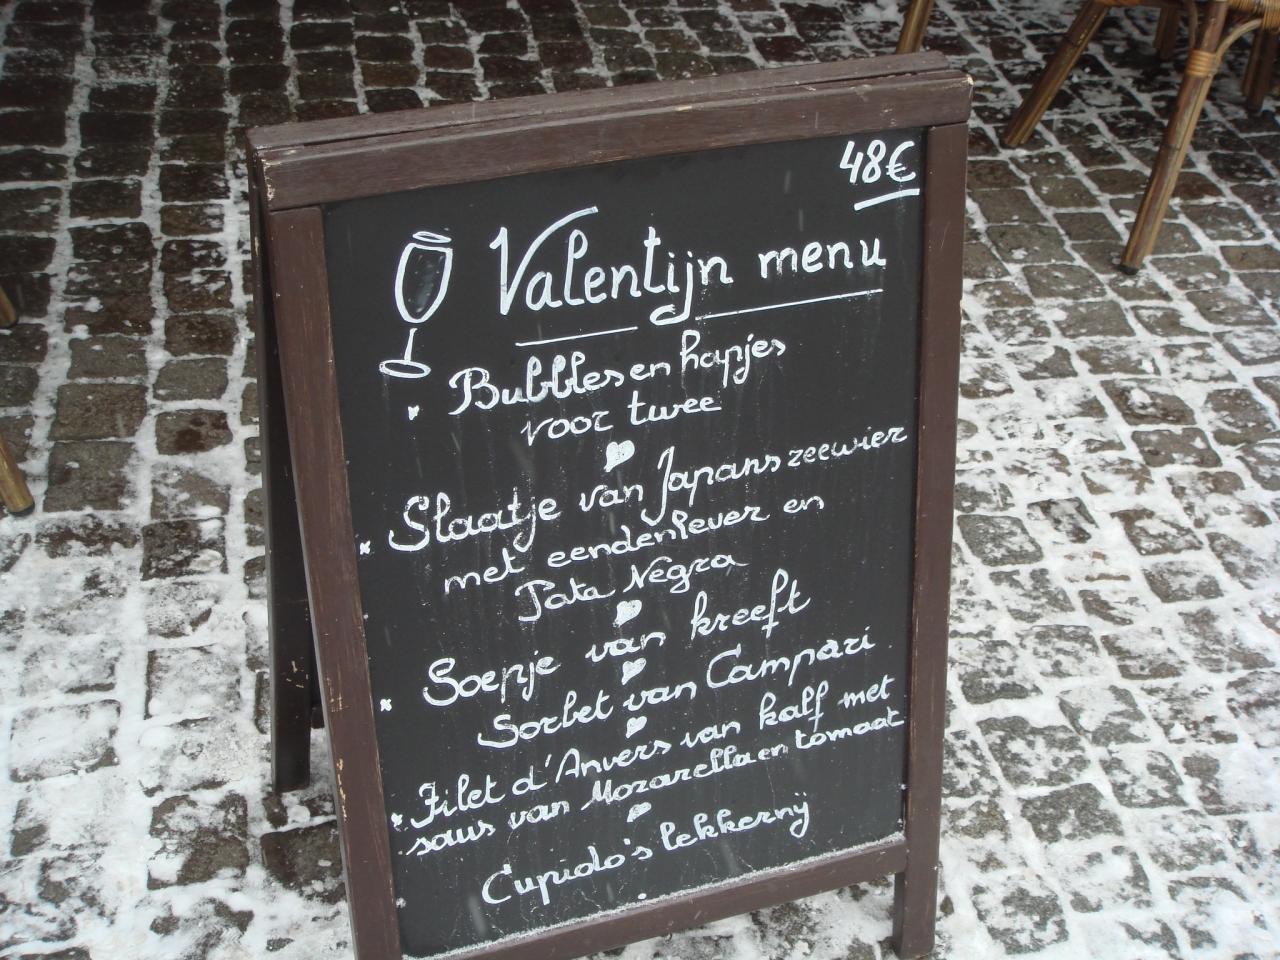 48€
Valentijn menu
Bubbles en hapjes
voor twee
Slaatje van Japans zeewier
met eendenlever en
Pata Negra
Soepje van kreeft
Sorbet van Campari
Filet d'Anvers van kalf met
saus van Mozarella en tomaat
Cupido's lekkernij